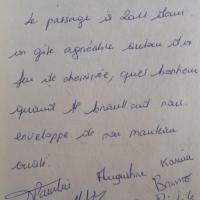 Le passage à 2011 dans
un gîte agréable autour d'un
feu de cheminée, quel bonheur
quand le brouillard nous
enveloppe de son manteau
ouaté.
Augustine Karina
Bruno